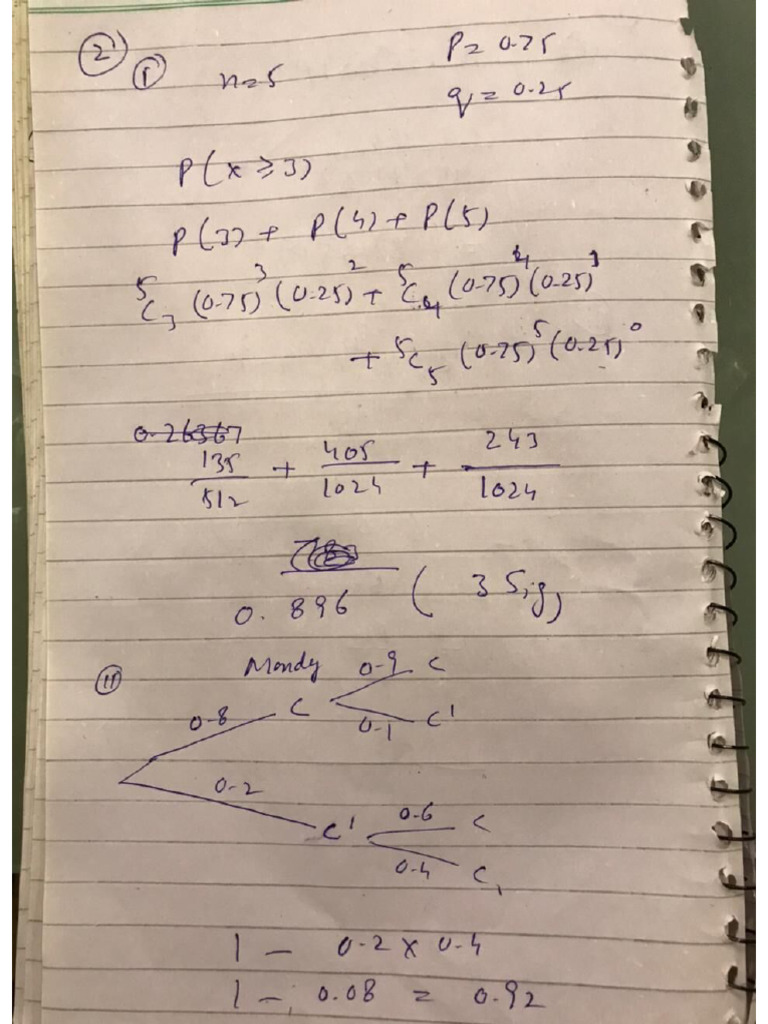 2
i n=5 P=0.75
q=0.25
P(x≥3)
P(3)+ P(4)+P(5)
⁵C₃ (0.75)³ (0.25)² + ⁵C₄ (0.75)⁴ (0.25)¹
+ ⁵C₅ (0.75)⁵ (0.25)⁰
0.26367
135/512 + 405/1024 + 243/1024
0.896 ( 3 Sig)
ii Mondy 0.9 C
0.8 C 0.1 C'
0.2 C' 0.6 C
0.4 C,
1 - 0.2 x 0.4
1 - 0.08 = 0.92